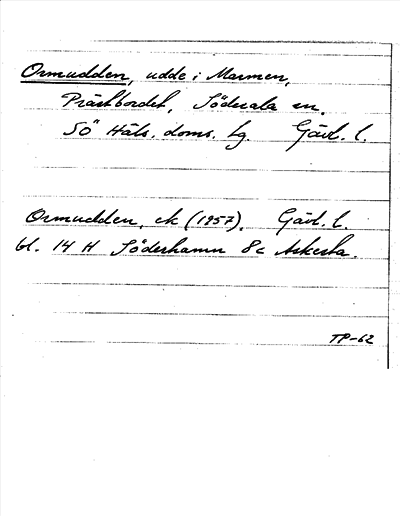 Ormudden, udde i Marmen,
Prästbordet, Söderala sn.
SÖ Häls. doms. tg. Gävl. l.
Ormudden, ek (1957). Gävl. l.
bl. 14 H Söderhamn 8 c Askesta.
TP-62